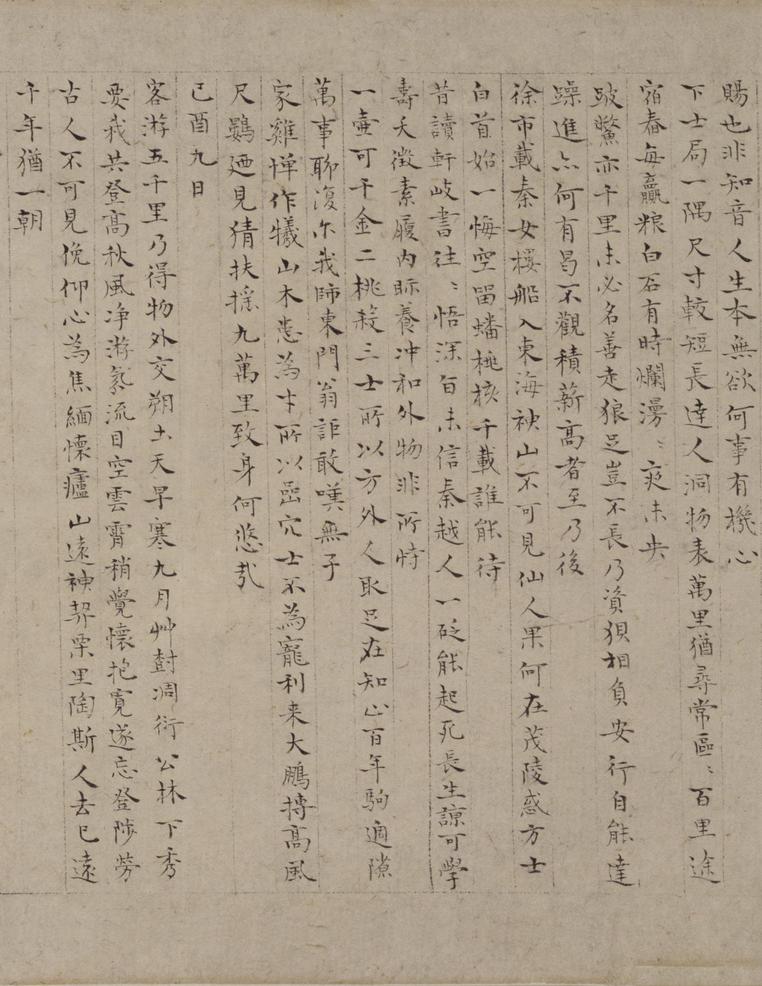 賜也非知音人生本無欲何事有機心
下士局一隅尺寸較短長達人洞物表萬里猶尋常區〻百里途
宿舂每贏粮白石有時爛漫〻夜未央
跛鱉亦千里未必名善走狼足豈不長乃資狽相負安行自能達
躁進亦何有曷不觀積薪高者至乃後
徐巿載秦女樓船入東海神山不可見仙人果何在茂陵惑方士
白首始一悔空留蟠桃核千載誰能待
昔讀軒岐書往〻悟深旨未信秦越人一砭能起死長生諒可學
壽夭徵素履內眎養冲和外物非所恃
一壷可千金二桃殺三士所以方外人取足在知止百年駒過隙
萬事聊復尔我師東門翁詎敢嘆無子
家雞憚作犧山木恙為才所以嵒穴士不為寵利来大鵬摶高風
尺鷃廼見猜扶揺九萬里致身何悠㢤
己酉九日
客游五千里乃得物外交朔土天早寒九月艸樹凋衍公林下秀
要我共登高秋風净游氛流目空雲霄稍覺懷抱寬遂忘登陟勞
古人不可見俛仰心為焦緬懷廬山遠神契栗里陶斯人去已遠
千年猶一朝